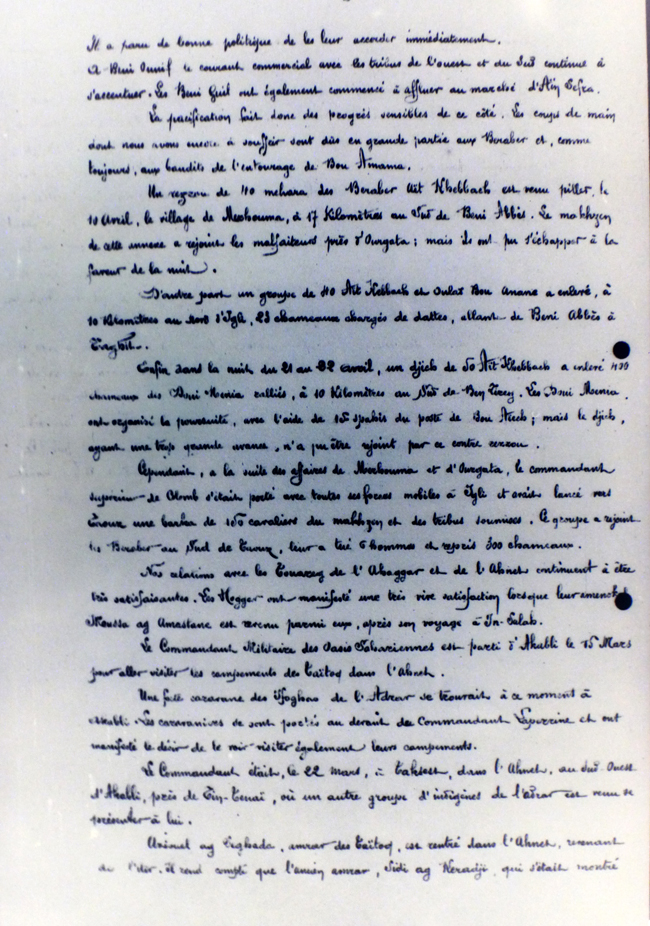 Il a paru de bonne politique de les leur accorder immédiatement.
A Beni Ounif le courant commercial avec les tribus de l'ouest et du Sud continue à
s'accentuer. Les Beni Guil ont également commencé à affluer au marché d'Aïn Sefra.
La pacification fait donc des progrès sensibles de ce côté. Les coups de main
dont nous avons encore à souffrir sont dûs en grande partie aux Beraber et, comme
toujours, aux bandits de l'entourage de Bou Amama.
Un rezzou de 40 mehara des Beraber Aït Khebbach est venu piller, le
10 Avril, le village de Mezbouma, à 17 Kilomètres au Sud de Beni Abbès. Le makhzen
de cette annexe a rejoint les malfaiteurs près d'Ourgata ; mais ils ont pu s'échapper à la
faveur de la nuit.
D'autre part un groupe de 40 Aït Kebbach et Oulad Bou Anane a enlevé, à
10 Kilomètres au Nord d'Igli, 23 chameaux chargés de dattes, allant de Beni Abbès à
Enfin dans la nuit du 21 au 22 avril, un djich de 50 Aït Khebbach a enleré 430
chameaux des Doui Menia ralliés, à 10 Kilomètres au Sud de Ben Zireg. Les Doui Menia
ont organisé la poursuite, avec l'aide de spahis du poste de Bou Aïech ; mais le djich,
ayant une trop grande avance, n'a pu être rejoint par ce contre rezzou.
Cependant, à la suite des affaires de Mezbouma et d'Ourgata, le commandant
supérieur de Colomb s'était porté avec toutes ses forces mobiles à Igli et avait lancé vers
une harka de 150 cavaliers du makhzen et des tribus soumises. Ce groupe a rejoint
les Beraber au Sud de , leur a tué 6 hommes et repris 300 chameaux.
Nos relations avec les Touareg de l'Ahaggar et de l'Ahnet continuent à être
très satisfaisantes. Les Hoggar ont manifesté une très vive satisfaction lorsque leur amenokal
Moussa ag Amastane est revenu parmi eux, après son voyage à In-Salah.
Le Commandant Militaire des Oasis Sahariennes est parti d'Akabli le 15 Mars
pour aller visiter les campements des Taïtoq dans l'Ahnet.
Une forte caravane des Ifoghas de l'Adrar se trouvait à ce moment à
Akabli. Les caravaniers se sont portés au devant du Commandant Laperrine et ont
manifesté le désir de le voir visiter également leurs campements.
Le Commandant était, le 22 mars, à Taksest, dans l'Ahnet, au Sud Ouest
d'Akabli, près de Tin-Tenaï, où un autre groupe d'indigènes de l'adrar est venu se
présenter à lui.
ag , amrar des Taïtoq, est rentré dans l'Ahnet, revenant
de l'Aïr. Il rend compte que l'ancien amrar, Sidi ag Keradji, qui s'était montré